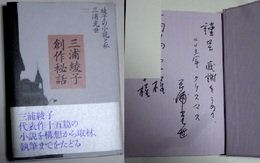 綾子の小説と私
三浦光世
三浦綾子
創作秘話
三浦綾子
代表作十五篇の
小説を構想から取材、
執筆までをたどる
謹呈 感謝をこめ、
クリスマス
様
三浦光世